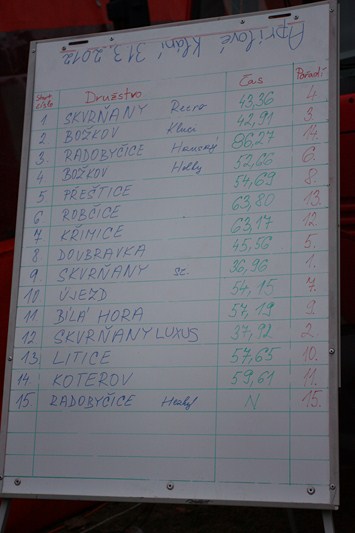 Aprílové Klání 31.3.2012
Start. číslo Družstvo Čas Pořadí
1 SKVRŇANY Retro 43,36 4.
2 BOŽKOV Kluci 42,91 3.
3. RADOBYČICE 86,27 14.
4 BOŽKOV Holky 52,66 6.
5 PŘEŠTICE 54,69 8.
6 ROBČICE 63,80 13.
7 KŘIMICE 63,17 12
8 DOUBRAVKA 45,56 5.
9 SKVRŇANY st. 36,96 1.
10 ÚJEZD 54,15 7.
11 BÍLÁ HORA 57,19 9.
12 SKVRŇANY LUXUS 37,92 2.
13. LITICE 57,65 10.
14. KOTEROV 59,61 11.
15. RADOBYČICE N 15.